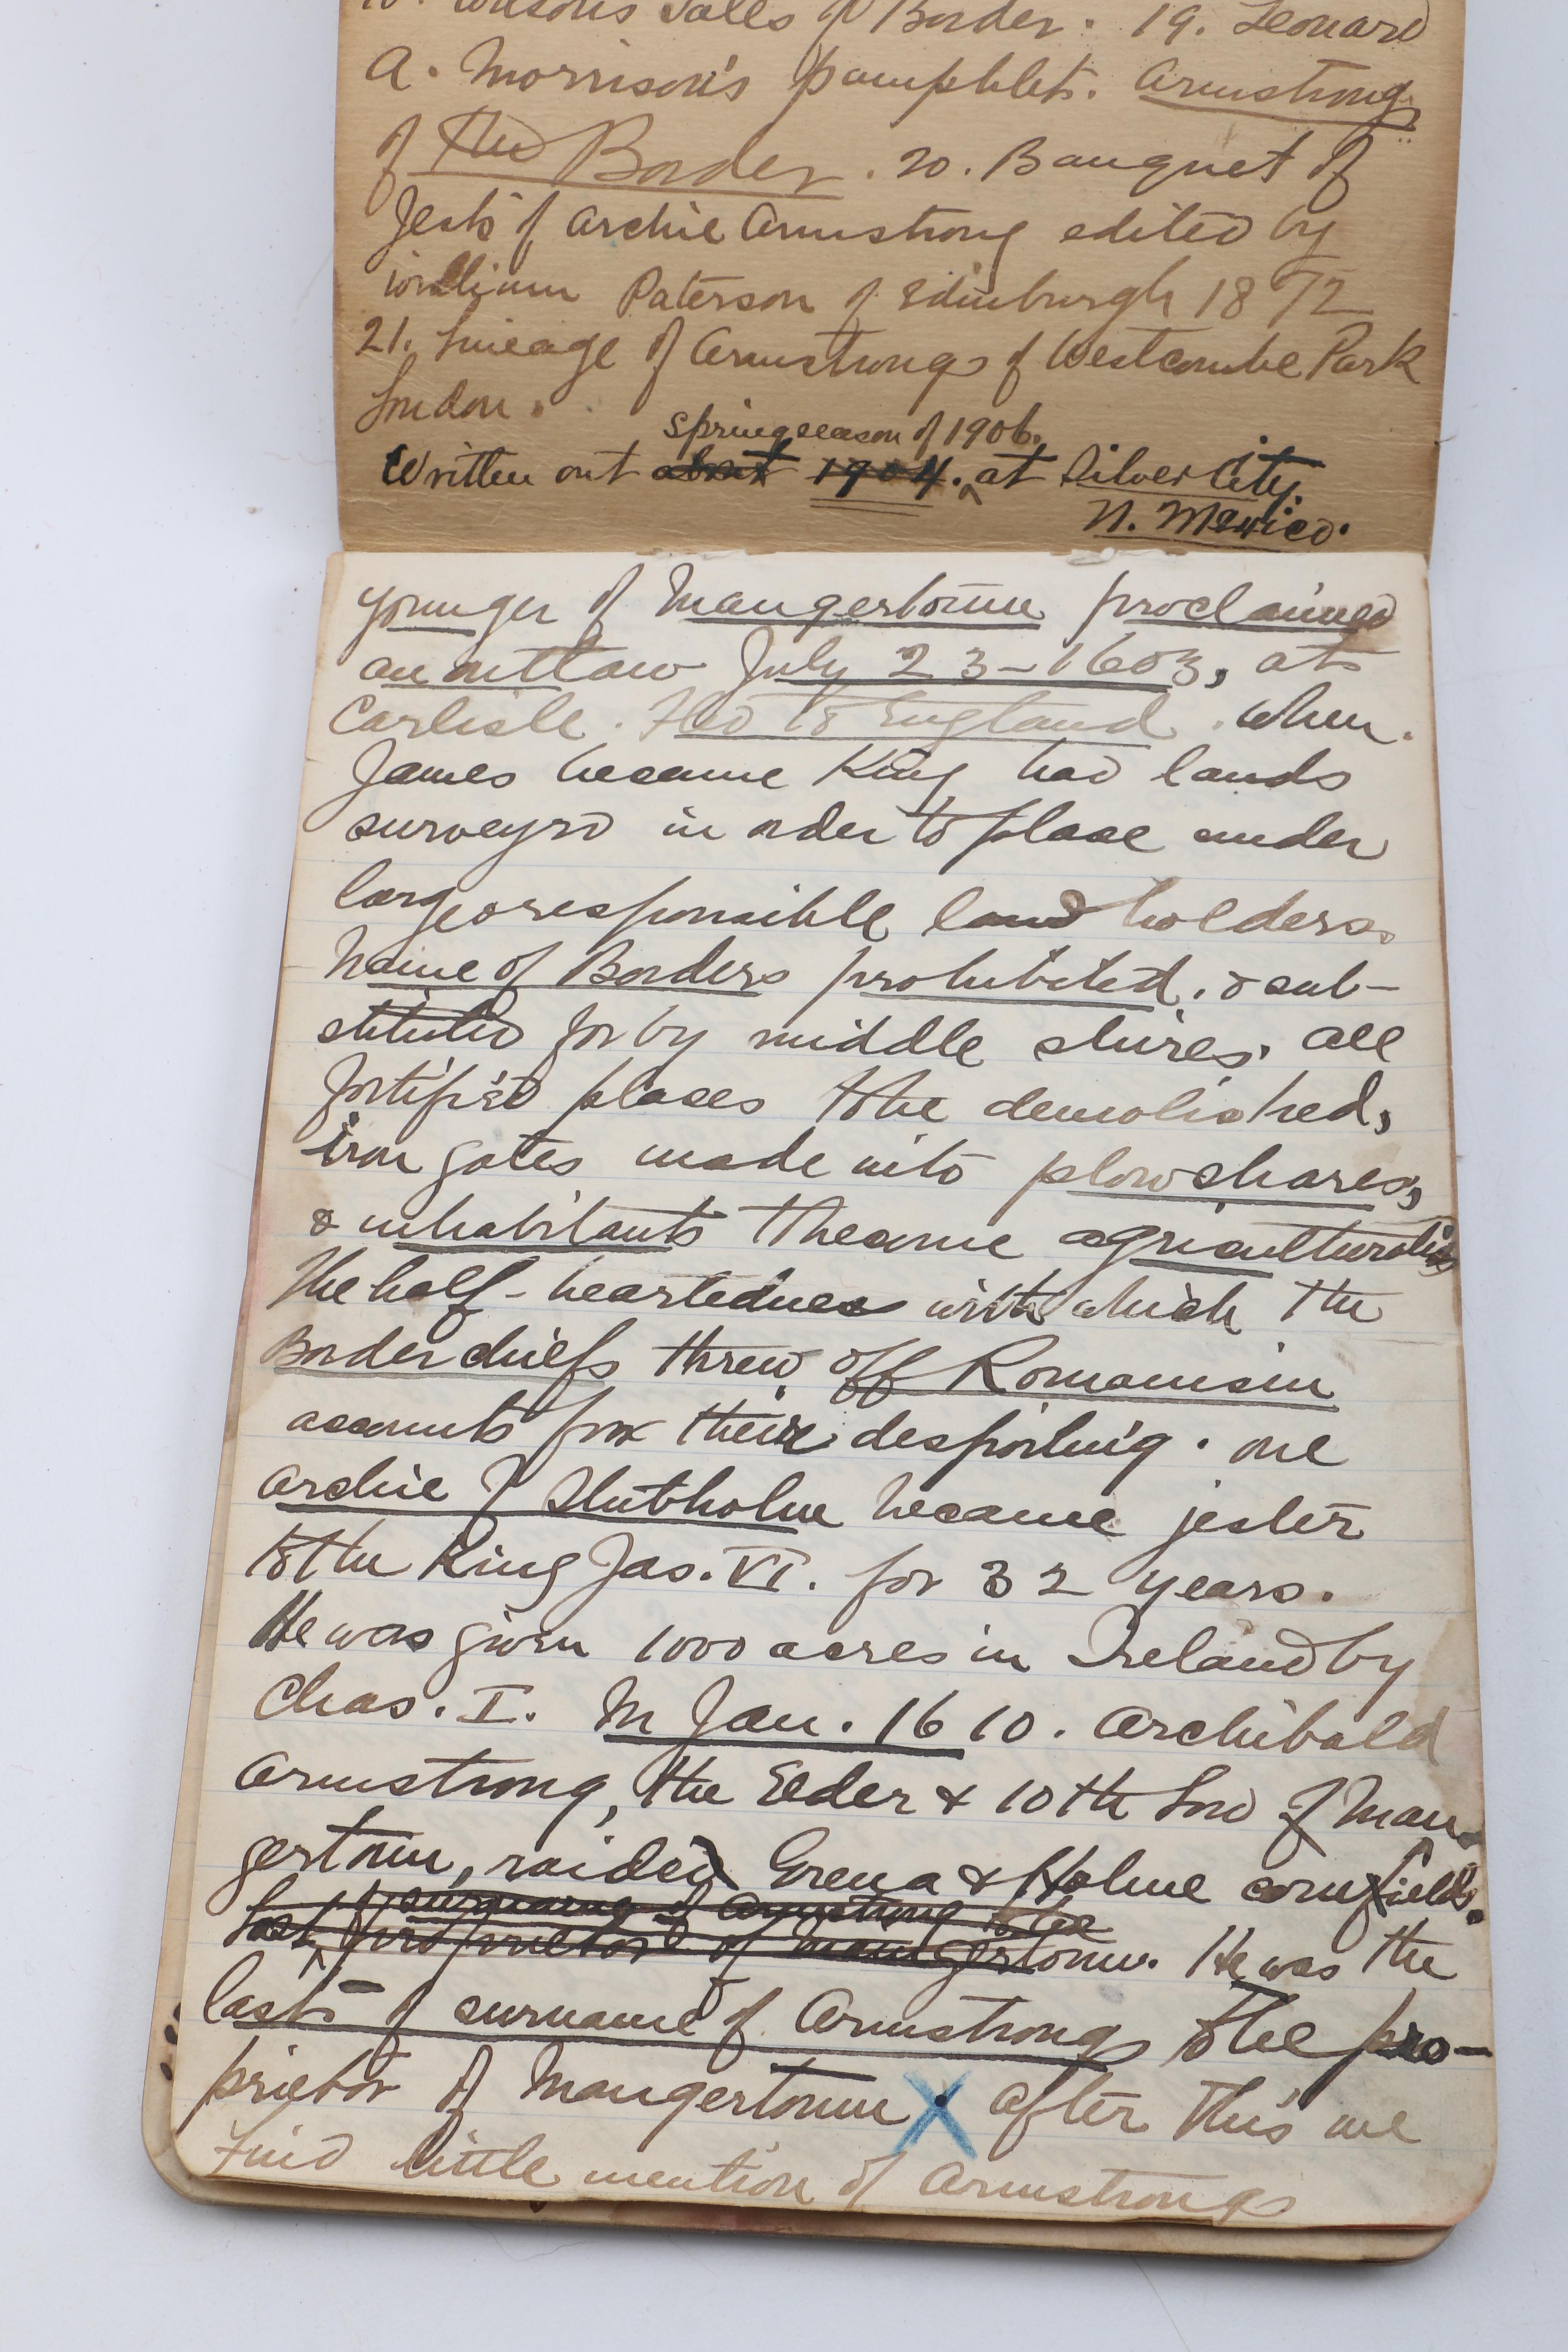 Wilsons Tales of Border. 19. Leonard
A. Morrison's pamphlet. Armstrongs
of the Border. 20. Banquet of
Jests of Archie Armstrong edited by
William Paterson of Edinburgh 1872
21. Lineage of Armstrongs of Westcombe Park
London.
spring season of 1906.
Written out about 1904. at Silver City.
N. Mexico.
younger of Mangertoune proclaimed
an outlaw July 23-1603, at
Carlisle. Fled to England. When
James became King had lands
surveyed in order to place under
large responsible land holders.
Name of Borders prohibited, & sub-
stituted for by middle shires. All
fortified places to be demolished,
iron gates made into plowshares,
& inhabitants to become agriculturalists
The half-heartedness with which the
Border chiefs threw off Romanism
accounts for their despoiling. One
Archie of Stubholme became jester
to the King Jas. VI. for 32 years.
He was given 1000 acres in Ireland by
Chas. I. In Jan. 1610. Archibald
Armstrong, the Elder & 10th Lord of Man-
gertoun, raided Grena & Holme cornfields.
of surname of Armstrong to be
last proprietor of Mangertoune. He was the
last of surname of Armstrong to be pro-
prietor of Mangertoune X. After this we
find little mention of Armstrongs